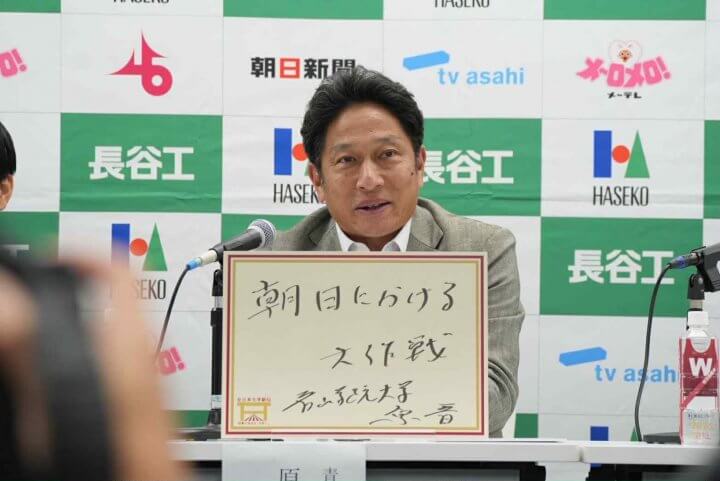 HASEKO
HASEKO
朝日新聞
tv asahi
メ〜テレ
長谷工
HASEKO
長谷工
HASEKO
HASEKO
長谷工
tv asahi
朝日にかける
大作戦
青山学院大学
原 晋
W
原